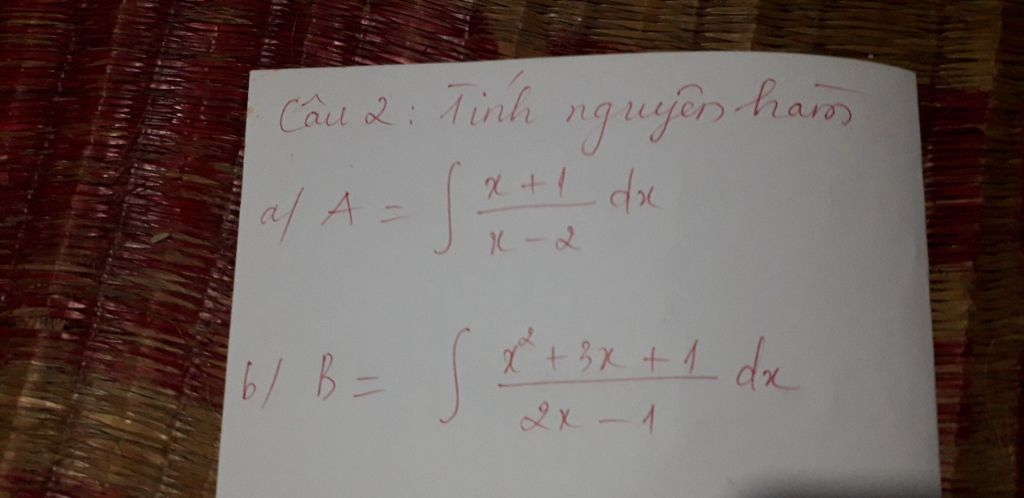 Câu 2: Tính nguyên hàm
a/ A = ∫ \frac{x+1}{x-2} dx
b/ B = ∫ \frac{x^2+3x+1}{2x-1} dx